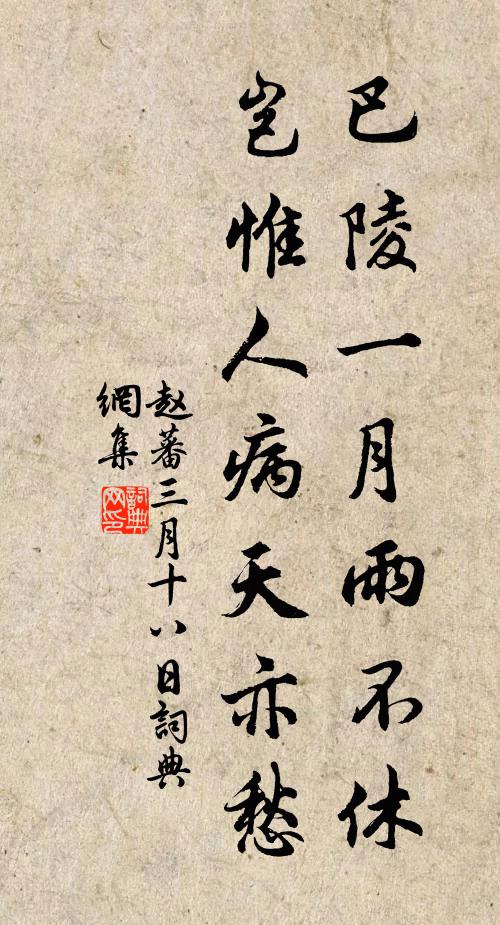 巴陵一月雨不休
岂惟人病天亦愁
赵蕃三月十八日詞典
網集
詞典
网印